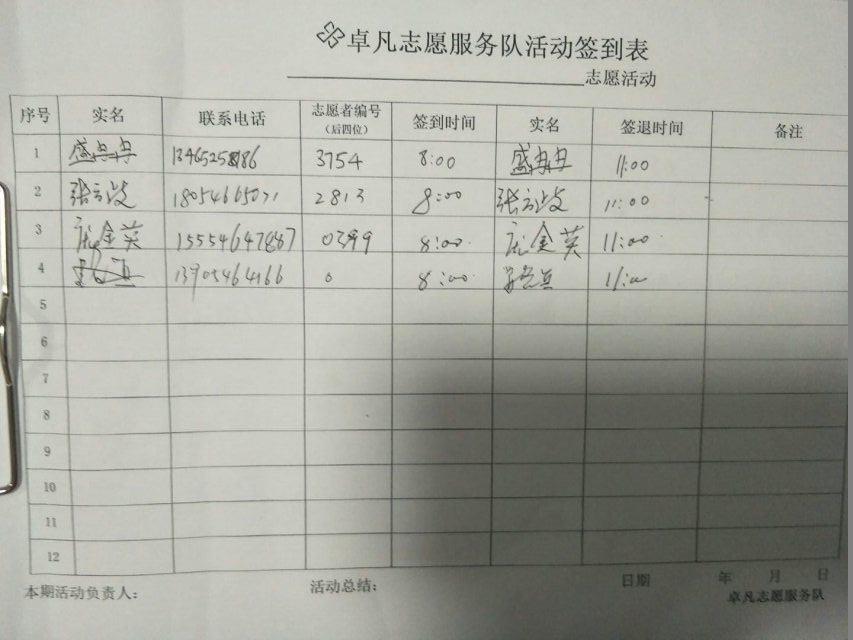 卓凡志愿服务队活动签到表
志愿活动
序号 实名 联系电话 志愿者编号(后四位) 签到时间 实名 签退时间 备注
1 盛冉冉 3754 8:00 盛冉冉 11:00
2 张 18054665071 2813 8:00 张 11:00
3 金英 15554647887 0399 8:00 金英 11:00
4 13905464166 0 8:00 11:00
5
6
7
8
9
10
11
12
本期活动负责人: 活动总结: 日期 年 月 日
卓凡志愿服务队